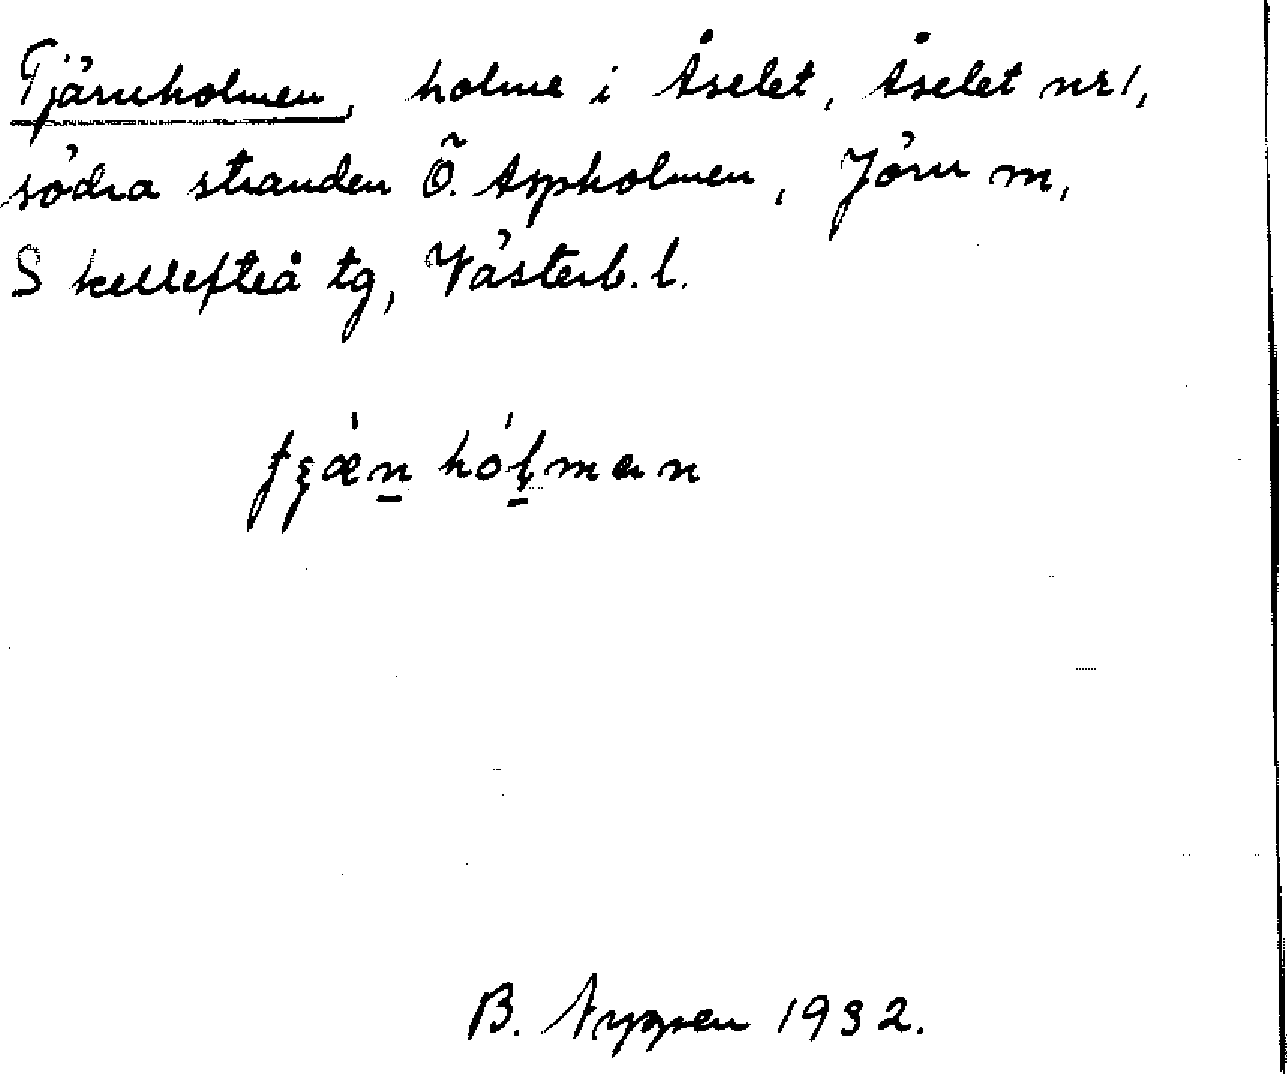 Tjärnholmen, holme i Åselet, Åselet nr 1,
södra stranden Ö. Aspholmen, Jörn m,
Skellefteå tg, Västerb. l.
B. 1932.